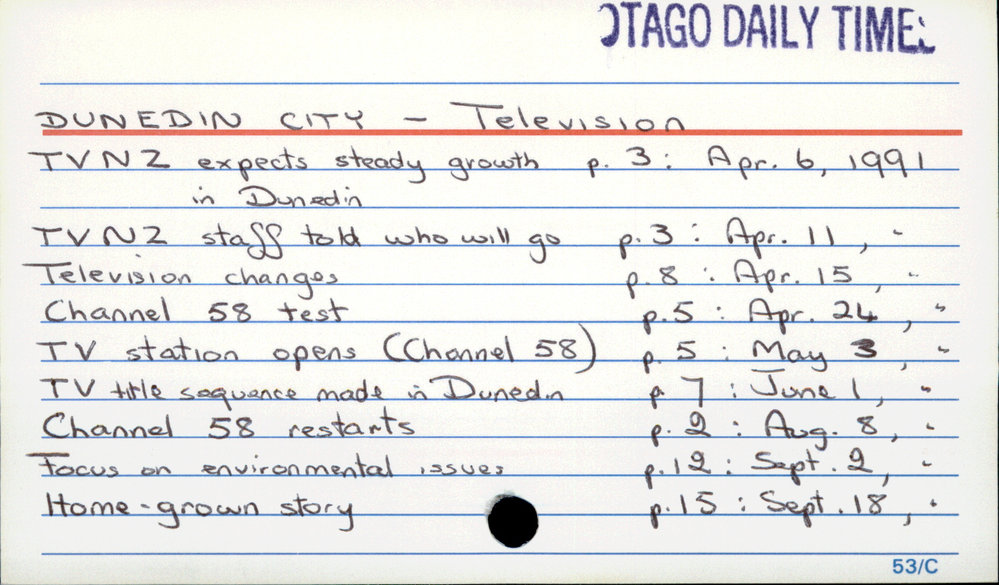 OTAGO DAILY TIMES
DUNEDIN CITY - Television
TVNZ expects steady growth p. 3 : Apr. 6, 1991
in Dunedin
TVNZ staff told who will go p. 3 : Apr. 11, "
Television changes p. 8 : Apr. 15, "
Channel 58 test p. 5 : Apr. 24, "
TV station opens (Channel 58) p. 5 : May 3, "
TV title sequence made in Dunedin p. 7 : June 1, "
Channel 58 restarts p. 2 : Aug. 8, "
Focus on environmental issues p. 12 : Sept. 2, "
Home-grown story p. 15 : Sept. 18, "
53/C